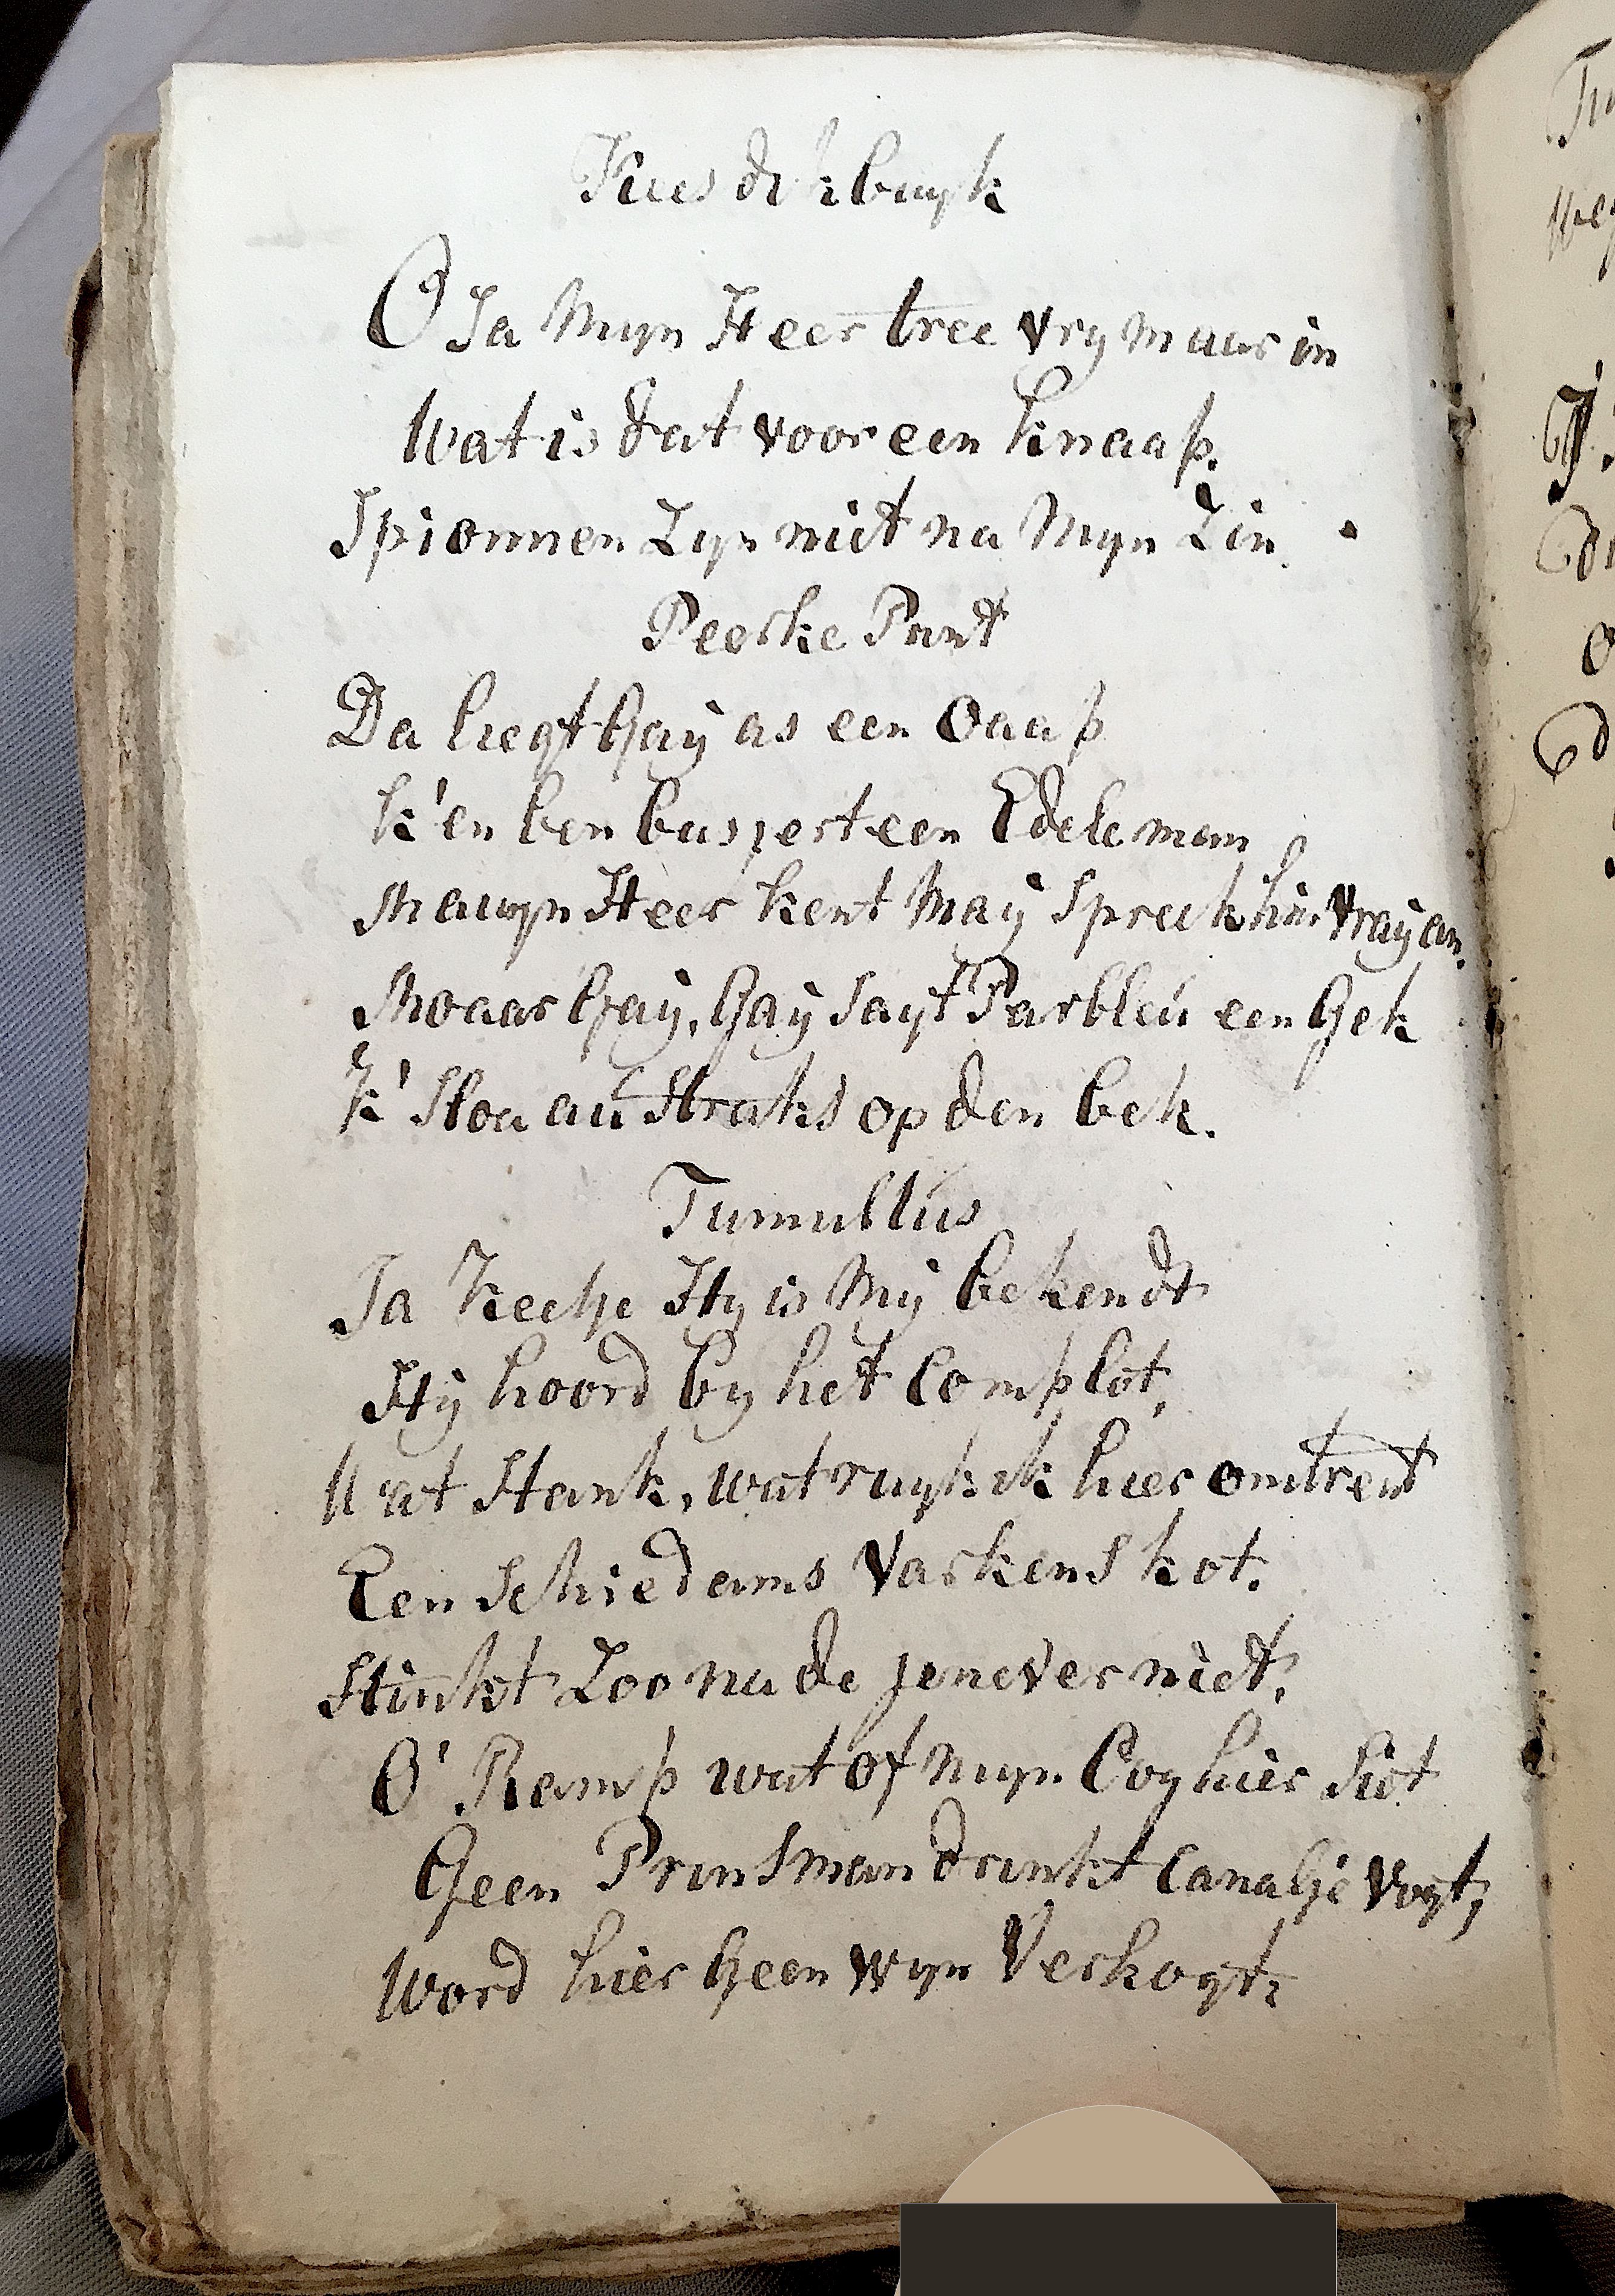 Kees dikbuyk
O Ja Myn Heer tree vry maar in
Wat is dat voor een knaap.
Spionnen Zyn niet na Myn Zin.
Peerke Pront
Da liegt Gaÿ as een Oaap
k'en ben buspert een Edele man
Maujn Heer kent Maÿ Spreek hier Vraÿ an.
Moaar Gaÿ, Gaÿ Sayt Parbleú een Gek
k' Sloa aú Straks op den bek.
Tumultús
Ja Keetje Hy is Mÿ bekendt
Hÿ hoord by het Complot,
Wat Stank, wat ruyk ik hier omtrent
Een Schiedams Varkens kot.
Stinkt Zoo na de jenever niet,
O' Ramp wat of myn Oog hier Siet
Geen Prinsman drinkt Canalje Vogt,
Word hier Geen wyn Verkogt;